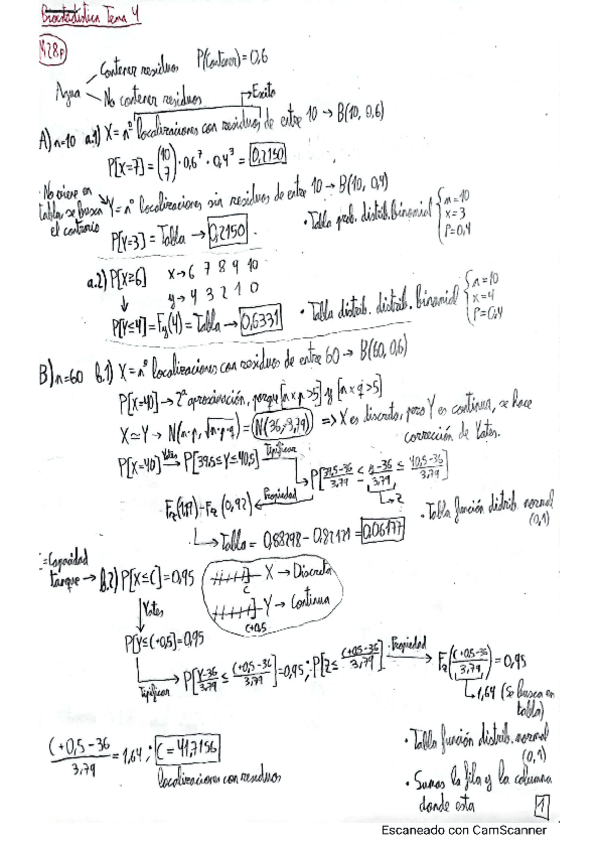 Bioestadística Tema 4
Contener residuos P(Contener)=0,6
Agua
No contener residuos → Éxito
A) n=10 a.1) X = nº localizaciones con residuos de entre 10 → B(10, 0,6)
P[X=7] = (10 7) · 0,6^7 · 0,4^3 = 0,2150
· No viene en tabla, se busca el contrario
Y = nº localizaciones sin residuos de entre 10 → B(10, 0,4)
P[Y=3] = Tabla → 0,2150 · Tabla prob. distrib. binomial { n=10 x=3 P=0,4
a.2) P[X≥6] X→ 6 7 8 9 10
y→ 4 3 2 1 0
P[Y≤4] = Fy(4) = Tabla → 0,6331 · Tabla distrib. distrib. binomial { n=10 x=4 P=0,4
B) n=60 b.1) X = nº localizaciones con residuos de entre 60 → B(60, 0,6)
P[X=40] → 2ª aproximación, porque [n×p>5] y [n×q>5]
X≃Y → N(n·p, √n·p·q) = N(36, 3,79) => X es discreto, pero Y es continua, se hace
corrección de Yates.
P[X=40] Yates→ P[39,5≤Y≤40,5] Tipificar
P[39,5-36/3,79 ≤ y-36/3,79 ≤ 40,5-36/3,79]
→ Z
Fz(1,19) - Fz(0,92) ← Propiedad
· Tabla función distrib. normal (0,1)
→ Tabla = 0,88298 - 0,82121 = 0,06177
Capacidad tanque → b.2) P[X≤C] = 0,95
C X → Discreta
C+0,5 Y → Continua
Yates
P[Y≤C+0,5] = 0,95
Tipificar P[Y-36/3,79 ≤ C+0,5-36/3,79] = 0,95; P[Z≤ C+0,5-36/3,79] Propiedad→ Fz(C+0,5-36/3,79) = 0,95
→ 1,64 (se busca en tabla)
C+0,5-36/3,79 = 1,64; C = 41,7156
localizaciones con residuos
· Tabla función distrib. normal (0,1)
· Sumas la fila y la columna
donde esta
1
Escaneado con CamScanner